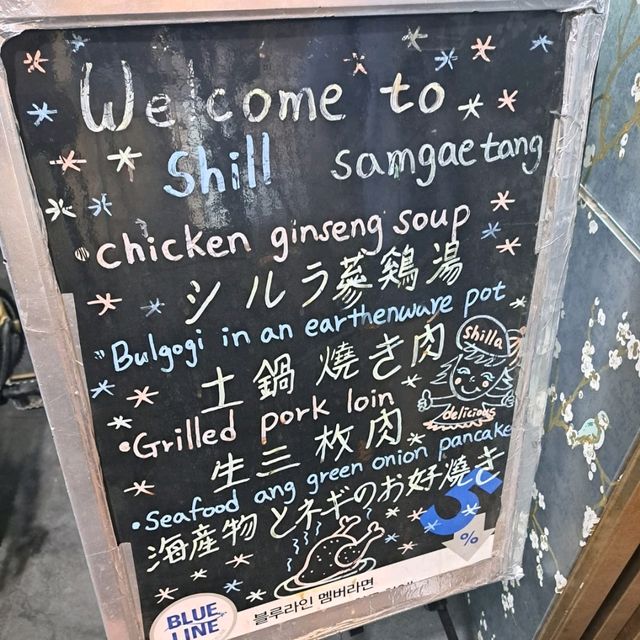 Welcome to
Shill samgaetang
• chicken ginseng soup
シルラ蔘鶏湯
Bulgogi in an earthenware pot
土鍋焼き肉
• Grilled pork loin
生三枚肉
• Seafood ang green onion pancake
海産物とネギのお好焼き
Shilla
delicious
%
BLUE
LINE
블루라인 멤버라면